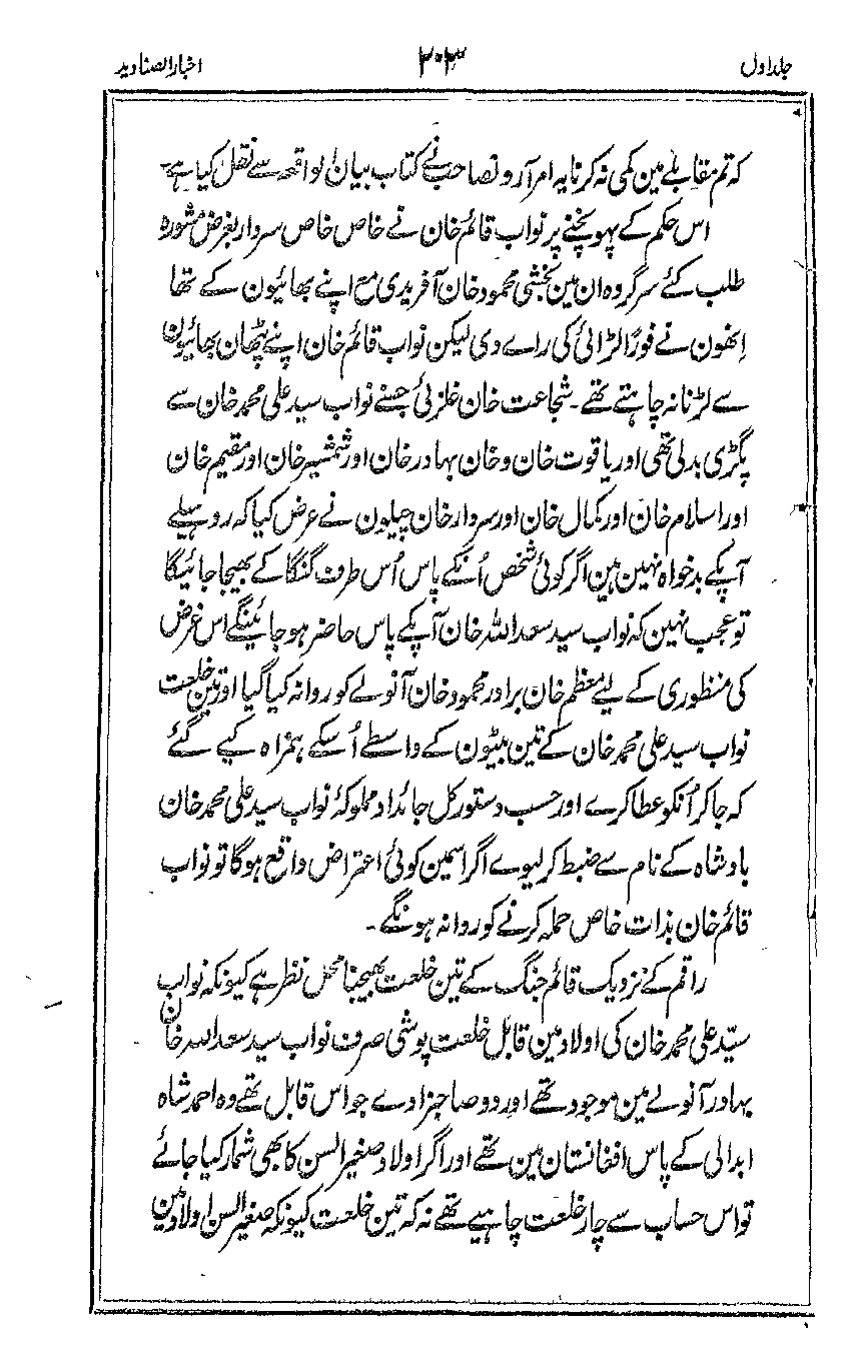 جلد اول
۲۰۳
اخبار الصنادید
کہ تم مقابلے مین کمی نہ کرنا یہ امر آرون صاحب نے کتاب بیان الواقعہ سے نقل کیا ہے
اس حکم کے پہونچنے پر نواب قائم خان نے خاص خاص سردار بغرض مشورہ
طلب کئے سرگروہ ان مین بخشی محمود خان آفریدی مع اپنے بھائیون کے تھا
اِنھون نے فوراً لڑائی کی راے دی لیکن نواب قائم خان اپنے پٹھان بھائیون
سے لڑنا نہ چاہتے تھے۔ شجاعت خان غلزئی جسنے نواب سید علی محمد خان سے
پگڑی بدلی تھی اور یاقوت خان و خان بہادر خان اور شمشیر خان اور مقیم خان
اور اسلام خان اور کمال خان اور سردار خان چیلون نے عرض کیا کہ روہیلے
آپکے بدخواہ نہین ہین اگر کوئی شخص اُنکے پاس اُس طرف گنگا کے بھیجا جائیگا
تو عجب نہین کہ نواب سید سعد اللہ خان آپکے پاس حاضر ہو جائینگے اس غرض
کی منظوری کے لیے معظم خان برادر محمود خان آنولے کو روانہ کیا گیا اور تین خلعت
نواب سید علی محمد خان کے تین بیٹون کے واسطے اُسکے ہمراہ کیے گئے
کہ جا کر اُنکو عطا کرے اور حسب دستور کل جائداد مملوکہٴ نواب سید علی محمد خان
بادشاہ کے نام سے ضبط کر لیوے اگر اسمین کوئی اعتراض واقع ہو گا تو نواب
قائم خان بذات خاص حملہ کرنے کو روانہ ہونگے۔
راقم کے نزدیک قائم جنگ کے تین خلعت بھیجنا محل نظر ہے کیونکہ نواب
سیّد علی محمد خان کی اولاد مین قابل خلعت پوشی صرف نواب سید سعد اللہ خان
بہادر آنولے مین موجود تھے اور دو صاحبزادے جو اس قابل تھے وہ احمد شاہ
ابدالی کے پاس افغانستان مین تھے اور اگر اولاد صغیر السن کا بھی شمار کیا جائے
تو اس حساب سے چار خلعت چاہیے تھے نہ کہ تین خلعت کیونکہ صغیر السن اولاد مین